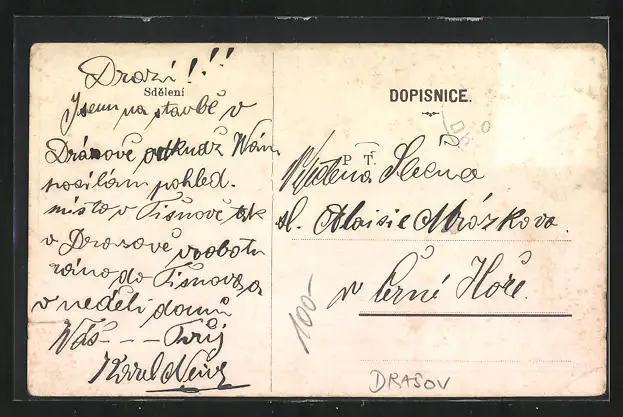 Drazí!!!
Sdělení
Jsem na stavbě v
Drásově odkudž Vám
posílám pohled.
místo v Tišnově tak
v Drasově v sobotu
ráno do Tišnova a
v neděli domů
Váš - - - Tvůj
Karel
DOPISNICE.
P. T.
Slečna
sl. Aloisie Mrázkova.
v Černé Hoře.
100-
DRASOV